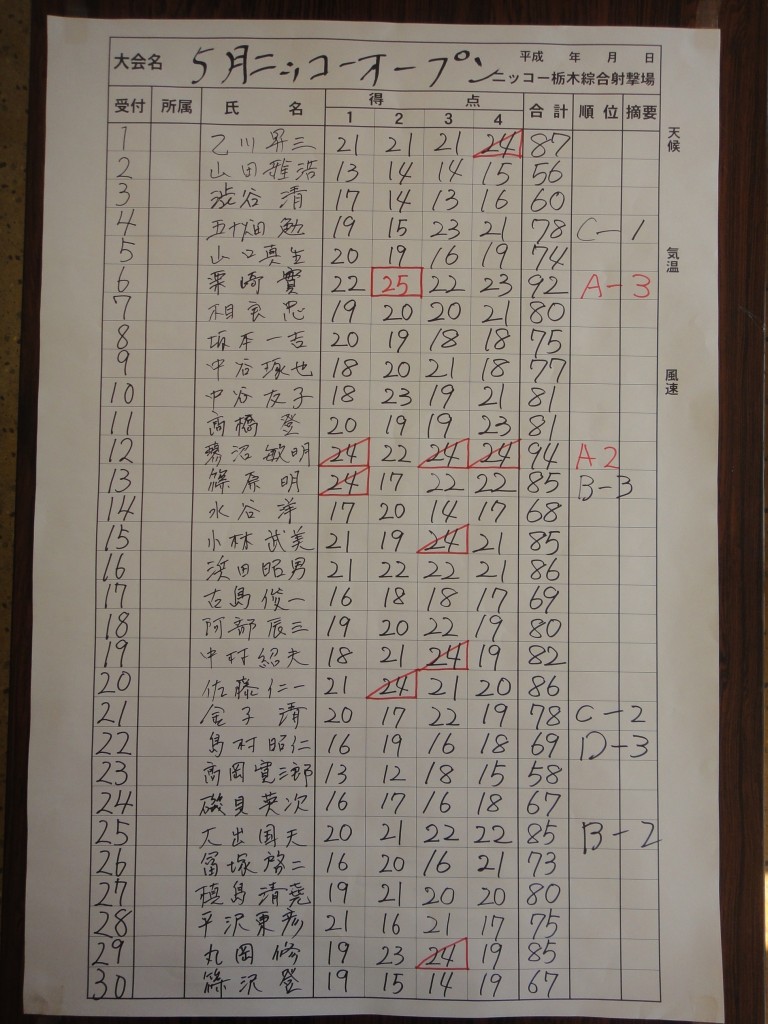 大会名 5月ニッコーオープン 平成 年 月 日
ニッコー栃木綜合射撃場
受付 所属 氏 名 得 点 合計 順位 摘要
1 2 3 4
天候
気温
風速
1 乙川昇三 21 21 21 24 87
2 山田雅浩 13 14 14 15 56
3 渋谷 清 17 14 13 16 60
4 五十畑 勉 19 15 23 21 78 C-1
5 山口真生 20 19 16 19 74
6 栗崎 實 22 25 22 23 92 A-3
7 相良 忠 19 20 20 21 80
8 坂本一吉 20 19 18 18 75
9 中谷琢也 18 20 21 18 77
10 中谷友子 18 23 19 21 81
11 高橋 登 20 19 19 23 81
12 沼敏明 24 22 24 24 94 A2
13 篠原 明 24 17 22 22 85 B-3
14 水谷 洋 17 20 14 17 68
15 小林武美 21 19 24 21 85
16 浜田昭男 21 22 22 21 86
17 古島俊一 16 18 18 17 69
18 阿部辰三 19 20 22 19 80
19 中村紹夫 18 21 24 19 82
20 佐藤仁一 21 24 21 20 86
21 金子 清 20 17 22 19 78 C-2
22 島村昭仁 16 19 16 18 69 D-3
23 高岡寛三郎 13 12 18 15 58
24 磯貝英次 16 17 16 18 67
25 大出国夫 20 21 22 22 85 B-2
26 冨塚啓二 16 20 16 21 73
27 槙島清堯 19 21 20 20 80
28 平沢東彦 21 16 21 17 75
29 丸岡 修 19 23 24 19 85
30 篠沢 登 19 15 14 19 67